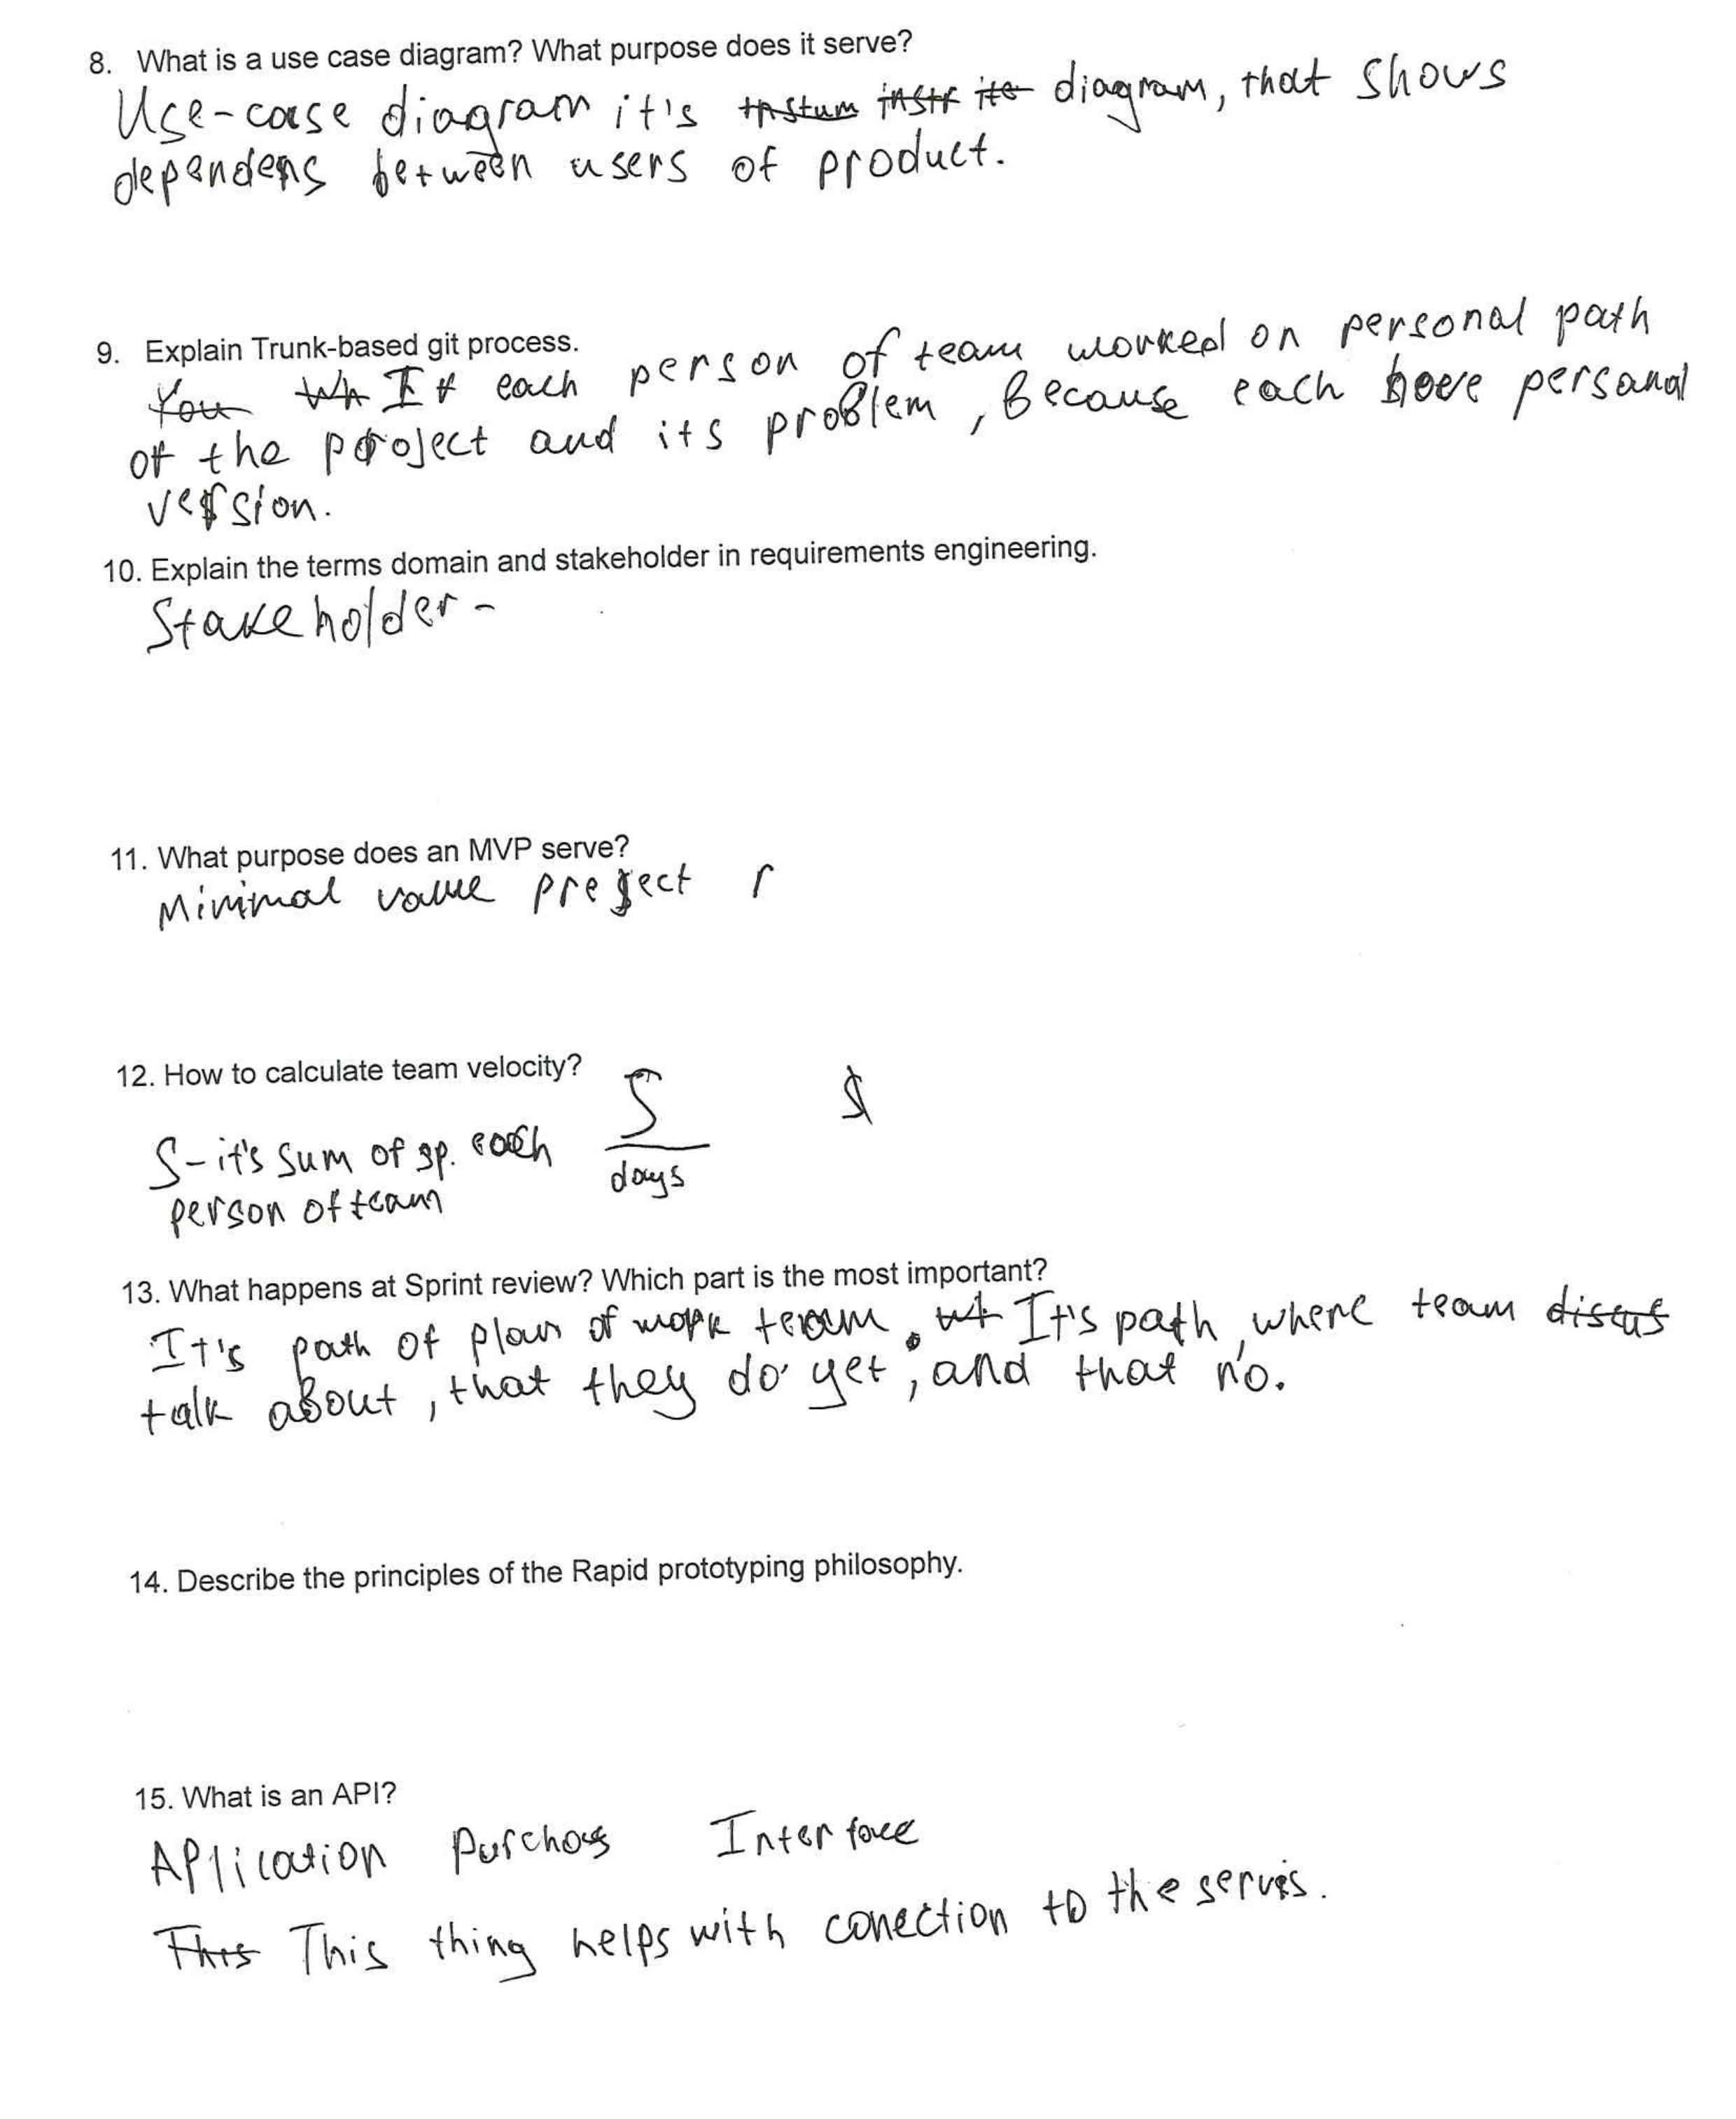 8. What is a use case diagram? What purpose does it serve?
Use-case diagram it's instum instr its diagram, that shows
dependens between users of product.
9. Explain Trunk-based git process.
You Wh If each person of team worked on personal path
of the project and its problem, because each have personal
version.
10. Explain the terms domain and stakeholder in requirements engineering.
Stakeholder -
11. What purpose does an MVP serve?
Minimal value project r
12. How to calculate team velocity?
S
days
S - it's sum of sp. each
person of team
13. What happens at Sprint review? Which part is the most important?
It's path of plan of work team. It's path, where team discus
talk about, that they do yet, and that no.
14. Describe the principles of the Rapid prototyping philosophy.
15. What is an API?
APlication Purchas Interface
This This thing helps with conection to the servis.